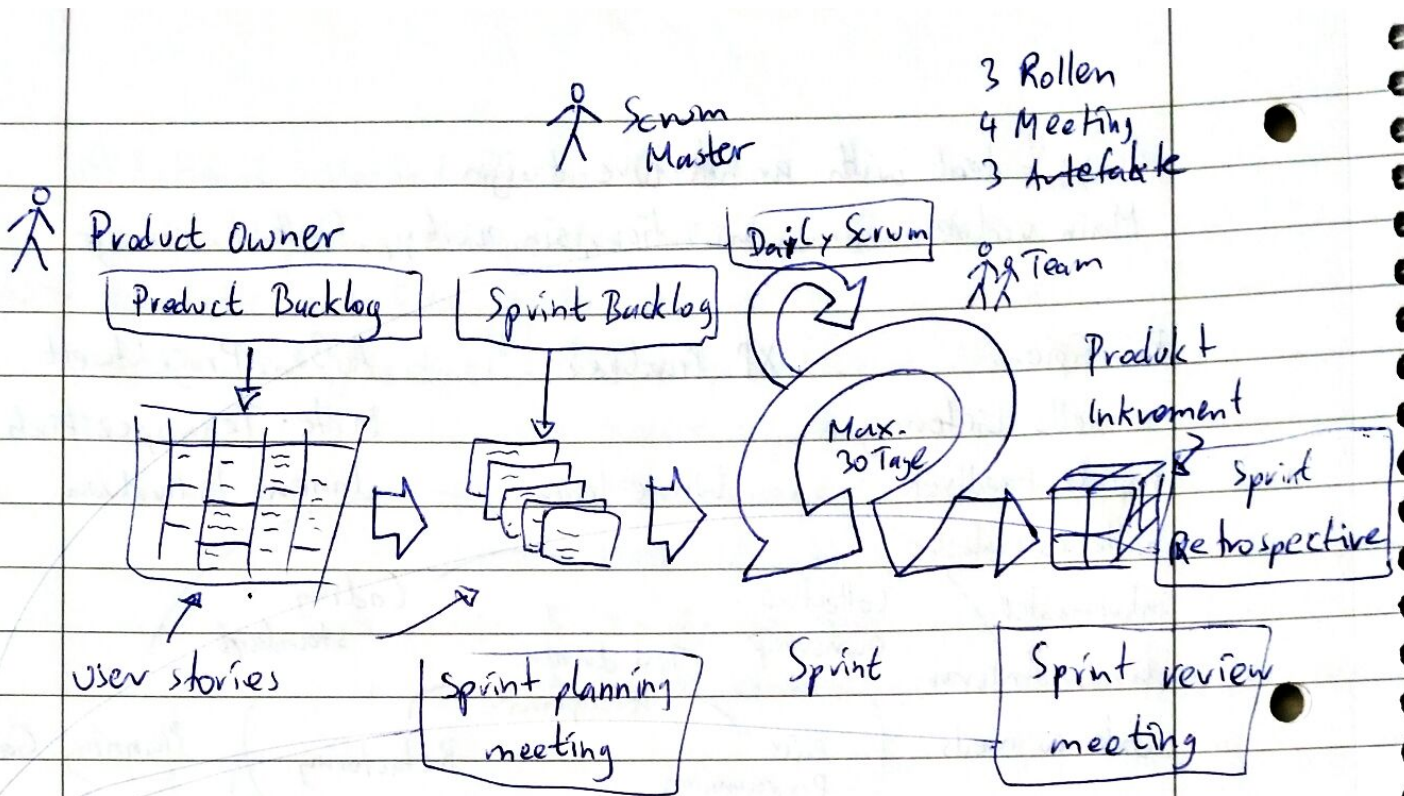 3 Rollen
4 Meeting
3 Artefakte
Scrum
Master
Product Owner
Product Backlog
Sprint Backlog
Daily Scrum
Team
Max.
30 Tage
Produkt
Inkrement
Sprint
Retrospective
User stories
Sprint planning
meeting
Sprint
Sprint review
meeting